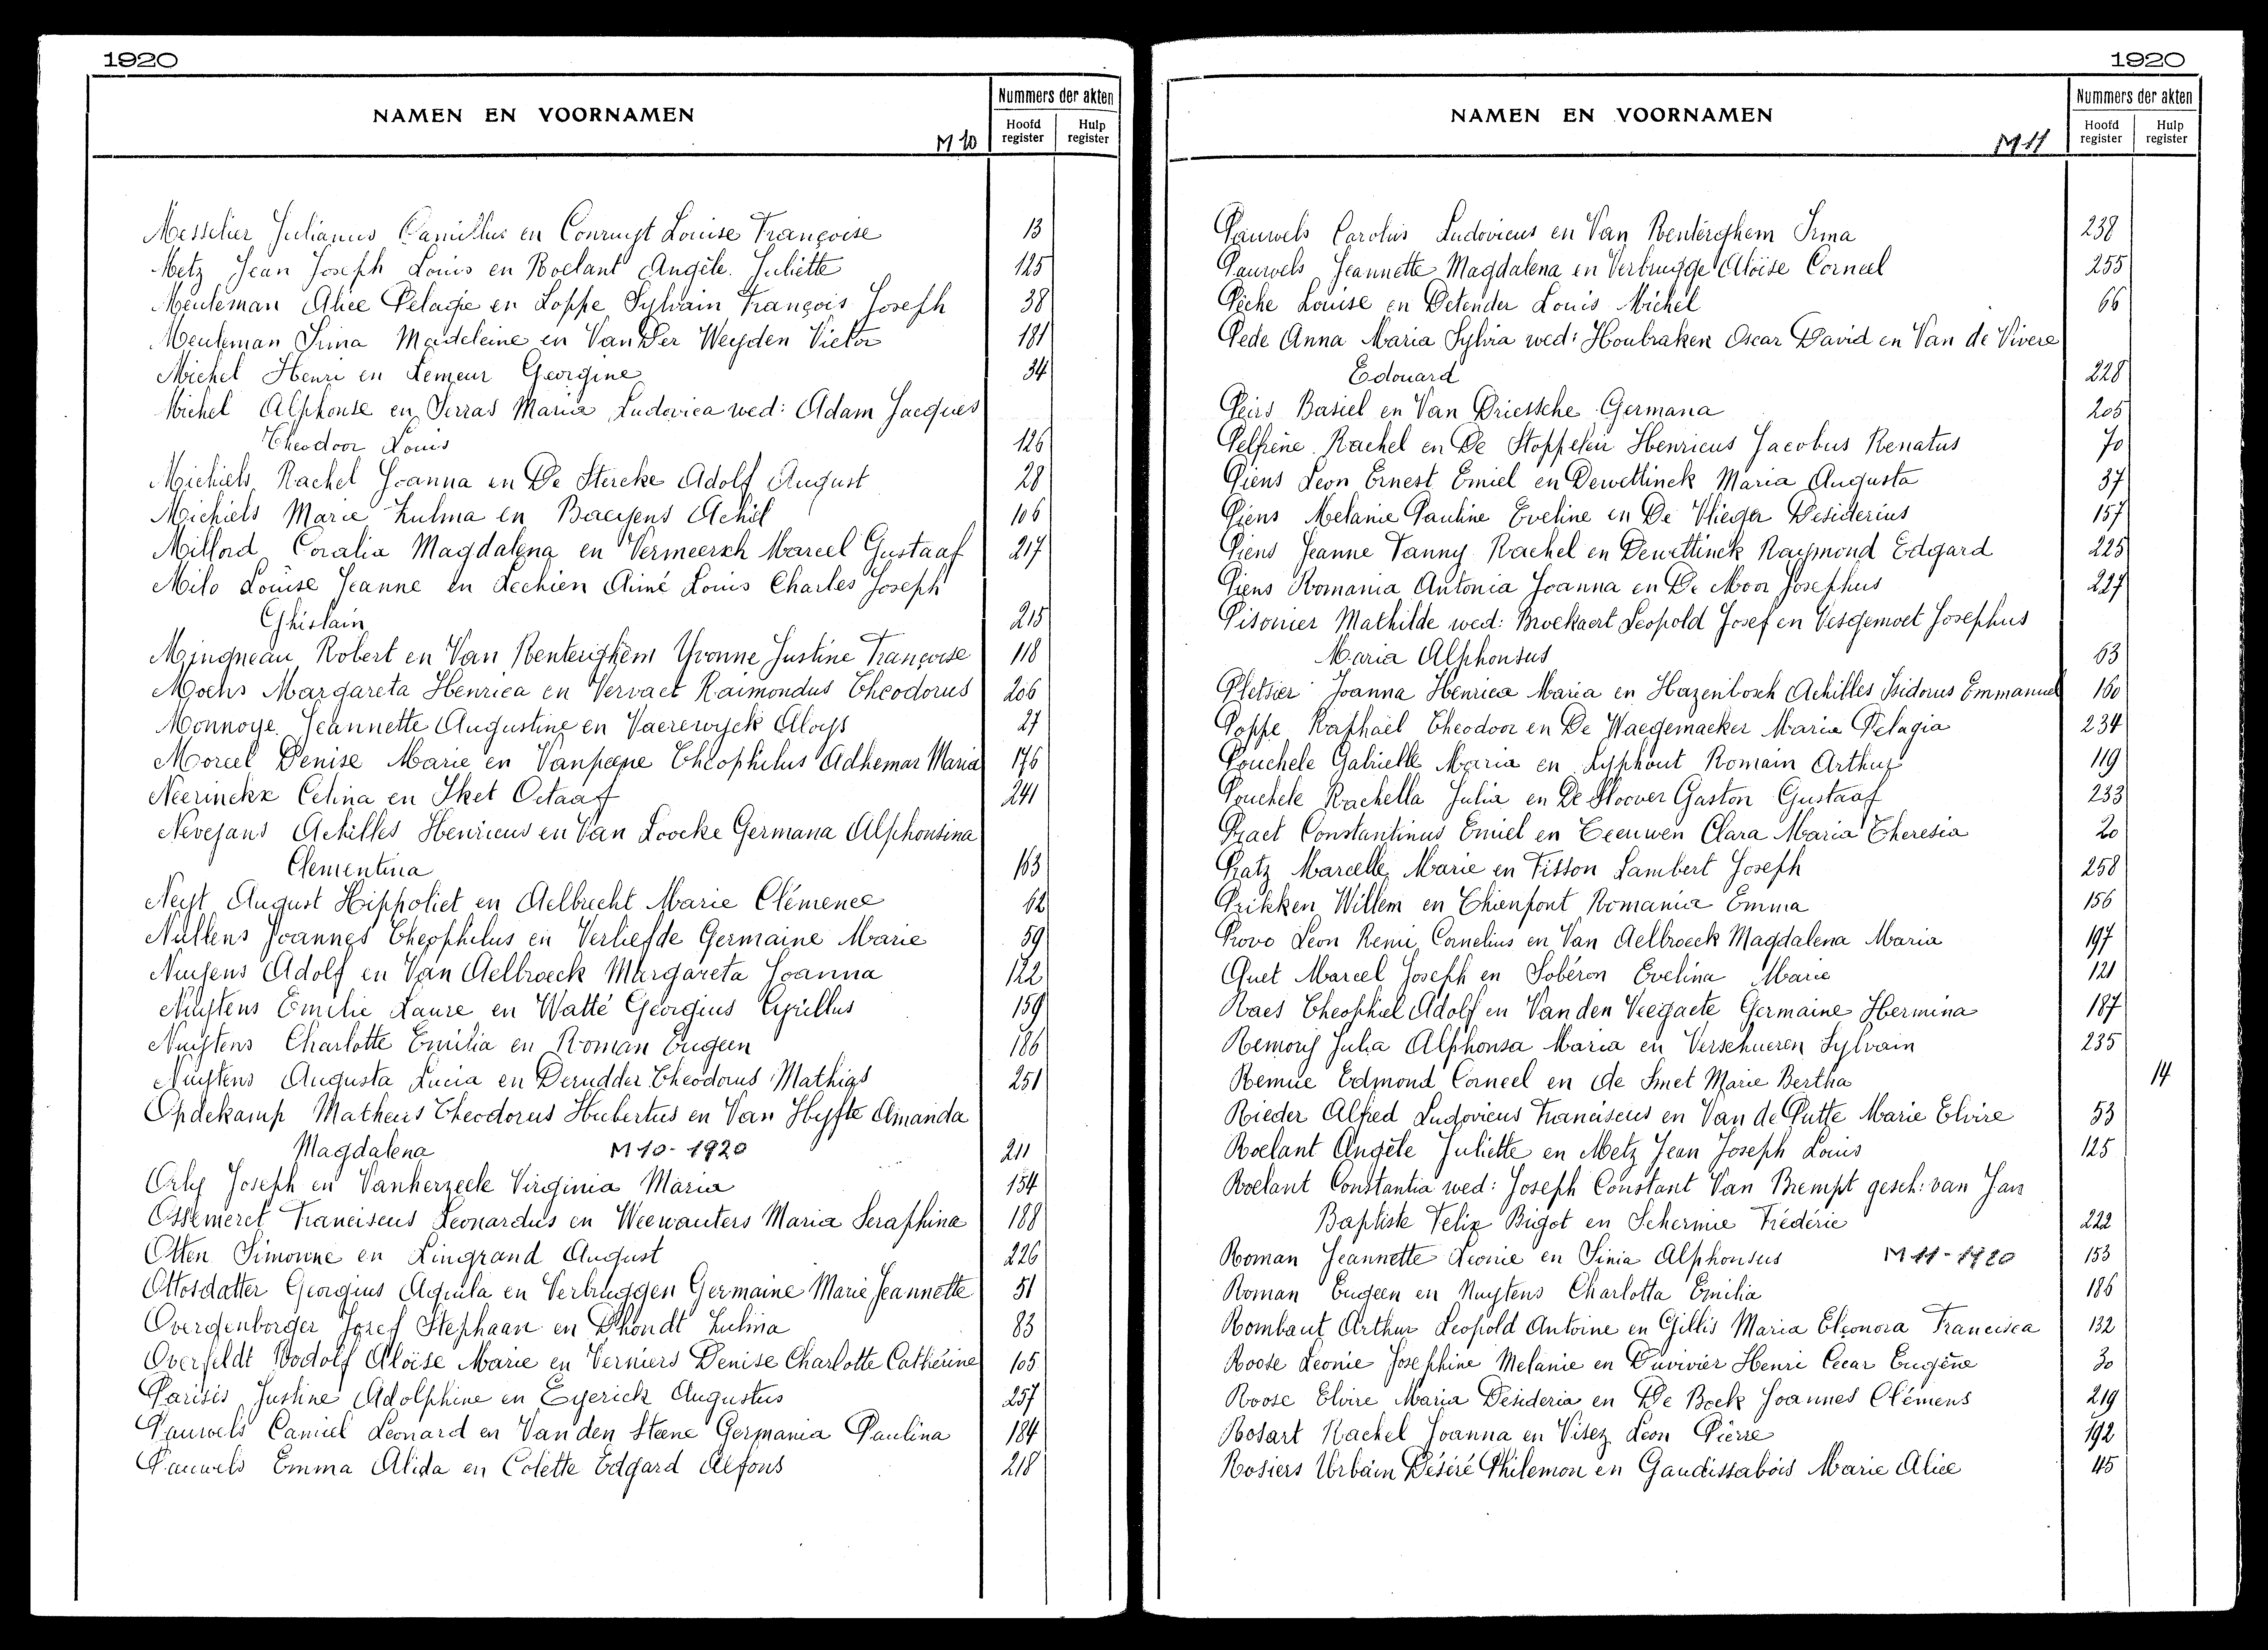 1920
NAMEN EN VOORNAMEN
M 10
Nummers der akten
Hoofd register
Hulp register
Messelier Julianus Camillus en Conruyt Louise Françoise 13
Metz Jean Joseph Louis en Roelant Angèle Juliette 125
Meuleman Alice Pelagie en Loppe Sylvain François Joseph 38
Meuleman Irma Madeleine en Van Der Weyden Victor 181
Michel Henri en Lemeur Georgine 34
Michel Alphonse en Serras Maria Ludovica wed: Adam Jacques
Theodoor Louis 126
Michiels Rachel Joanna en De Stercke Adolf August 28
Michiels Marie Zulma en Baeyens Achil 106
Millord Coralia Magdalena en Vermeersch Marcel Gustaaf 217
Milo Louise Jeanne en Lechien Aimé Louis Charles Joseph
Ghislain 215
Mingneau Robert en Van Renterghem Yvonne Justine Françoise 118
Moens Margareta Henrica en Vervaet Raimondus Theodorus 206
Monnoye Jeannette Augustine en Vaerewyck Aloys 27
Moreel Denise Marie en Vanpeene Theophilus Adhemar Maria 176
Neerinckx Celina en Sket Octaaf 241
Nevejans Achilles Henricus en Van Loocke Germana Alphonsina
Clementina 163
Neyt August Hippoliet en Aelbrecht Marie Clémence 12
Nullens Joannes Theophilus en Verliefde Germaine Marie 59
Nuyens Adolf en Van Aelbroeck Margareta Joanna 122
Nuytens Emilie Laure en Watté Georgius Cyrillus 159
Nuytens Charlotte Emilia en Roman Eugeen 186
Nuytens Augusta Lucia en Derudder Theodorus Mathias 251
Opdekamp Matheus Theodorus Hubertus en Van Hyfte Amanda
Magdalena M 10 - 1920 211
Orly Joseph en Vanherzeele Virginia Maria 154
Ossemeret Franciscus Leonardus en Weewauters Maria Seraphina 188
Otten Simonne en Lingrand August 226
Ottosdatter Georgius Aquila en Verbruggen Germaine Marie Jeannette 51
Overgenborger Jozef Stephaan en Dhondt Zulma 83
Overfeldt Rodolf Aloïse Marie en Verniers Denise Charlotte Cathérine 105
Parisis Justine Adolphine en Eyerick Augustus 257
Pauwels Camiel Leonard en Van den Steene Germania Paulina 184
Pauwels Emma Alida en Colette Edgard Alfons 218
1920
NAMEN EN VOORNAMEN
M 11
Nummers der akten
Hoofd register
Hulp register
Pauwels Carolus Ludovicus en Van Renterghem Irma 238
Pauwels Jeannette Magdalena en Verbrugge Aloïse Corneel 255
Pèche Louise en Detender Louis Michel 66
Pede Anna Maria Sylvia wed: Houbraken Oscar David en Van de Vivere
Edouard 228
Peirs Basiel en Van Driessche Germana 205
Pelfrène Rachel en De Stoppeleir Henricus Jacobus Renatus 70
Piens Leon Ernest Emiel en Dewettinck Maria Augusta 37
Piens Melanie Pauline Eveline en De Vlieger Desiderius 157
Piens Jeanne Fanny Rachel en Dewettinck Raymond Edgard 225
Piens Romania Antonia Joanna en De Moor Josephus 227
Pisonier Mathilde wed: Broekaert Leopold Josef en Vesgemoet Josephus
Maria Alphonsus 63
Pletsier Joanna Henrica Maria en Hazenbosch Achilles Isidorus Emmanuel 160
Poppe Raphaël Theodoor en De Waegemaeker Maria Pelagia 234
Pouchele Gabrielle Maria en Lyphout Romain Arthur 119
Pouchele Rachella Julia en De Sloover Gaston Gustaaf 233
Praet Constantinus Emiel en Leeuwen Clara Maria Theresia 20
Pratz Marcelle Marie en Fisson Lambert Joseph 258
Prikken Willem en Thienpont Romania Emma 156
Provo Leon Remi Cornelius en Van Aelbroeck Magdalena Maria 197
Quet Marcel Joseph en Sobéron Evelina Marie 121
Raes Theophiel Adolf en Van den Veegaete Germaine Hermina 187
Remory Julia Alphonsa Maria en Verschueren Sylvain 235
Remue Edmond Corneel en de Smet Marie Bertha 14
Rieder Alfred Ludovicus Franciscus en Van de Putte Marie Elvire 53
Roelant Angèle Juliette en Metz Jean Joseph Louis 125
Roelant Constantia wed: Joseph Constant Van Brempt gesch: van Jan
Baptiste Felix Bigot en Schermie Frédéric 222
Roman Jeannette Leonie en Sinia Alphonsus M 11 - 1920 153
Roman Eugeen en Nuytens Charlotta Emilia 186
Rombaut Arthur Leopold Antoine en Gillis Maria Eleonora Francisca 132
Roose Leonie Josephine Melanie en Duvivier Henri Cecar Eugène 30
Roose Elvire Maria Desideria en De Bock Joannes Clémens 219
Rosart Rachel Joanna en Visez Léon Pierre 192
Rosiers Urbain Désiré Philemon en Gaudissabois Marie Alice 45